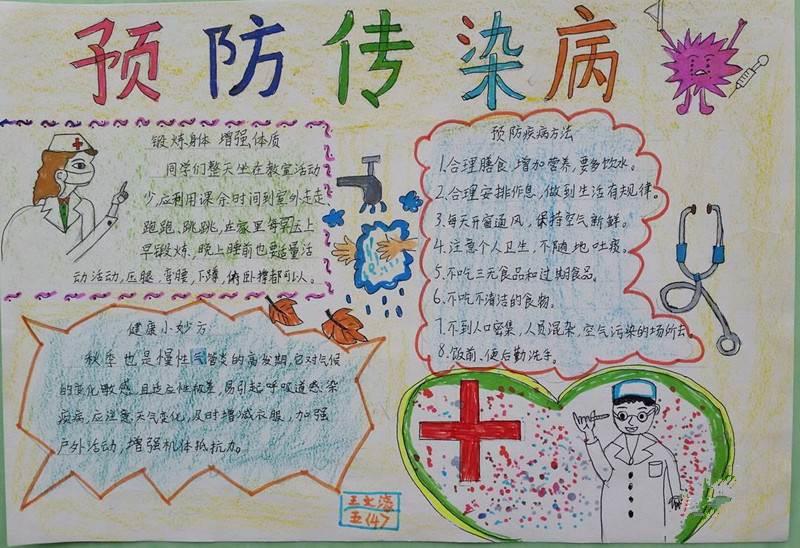 预防传染病
锻炼身体 增强体质
同学们整天坐在教室活动
少,应利用课余时间到室外走走
跑跑、跳跳,在家里每早上
早锻炼,晚上睡前也要适量活
动活动,压腿、弯腰、下蹲、俯卧撑都可以。
预防疾病方法
1.合理膳食,增加营养,要多饮水。
2.合理安排作息,做到生活有规律。
3.每天开窗通风,保持空气新鲜。
4.注意个人卫生,不随地吐痰。
5.不吃三元食品和过期食品。
6.不吃不清洁的食物。
7.不到人口密集,人员混杂,空气污染的场所去。
8.饭前、便后勤洗手。
健康小妙方
秋季也是慢性气管炎的高发期,它对气候
的变化敏感,且适应性极差,易引起呼吸道感染
疾病,应注意天气变化,及时增减衣服,加强
户外活动,增强机体抵抗力。
五(4)